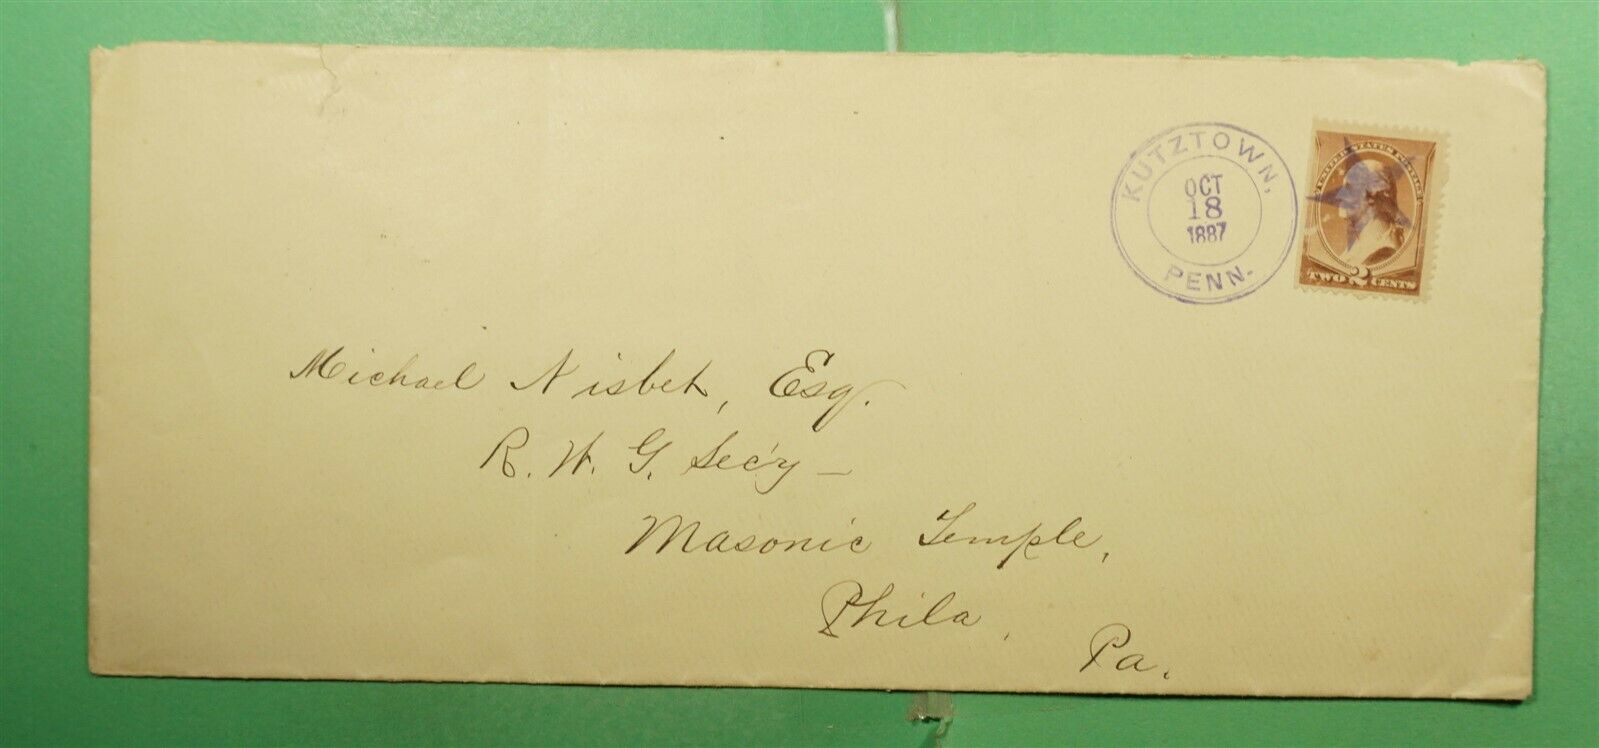 KUTZTOWN,
OCT
18
1887
PENN.
UNITED STATES POSTAGE
TWO 2 CENTS
Michael Nisbet, Esq.
R. W. G. Sec'y —
Masonic Temple,
Phila,
Pa.